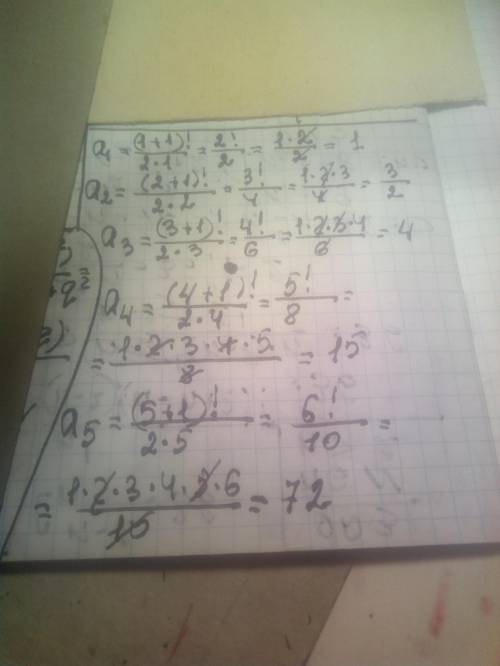 a₁ = (1+1)!/2·1 = 2!/2 = 1·2/2 = 1
a₂ = (2+1)!/2·2 = 3!/4 = 1·2·3/4 = 3/2
a₃ = (3+1)!/2·3 = 4!/6 = 1·2·3·4/6 = 4
a₄ = (4+1)!/2·4 = 5!/8 =
= 1·2·3·4·5/8 = 15
a₅ = (5+1)!/2·5 = 6!/10 =
= 1·2·3·4·5·6/10 = 72